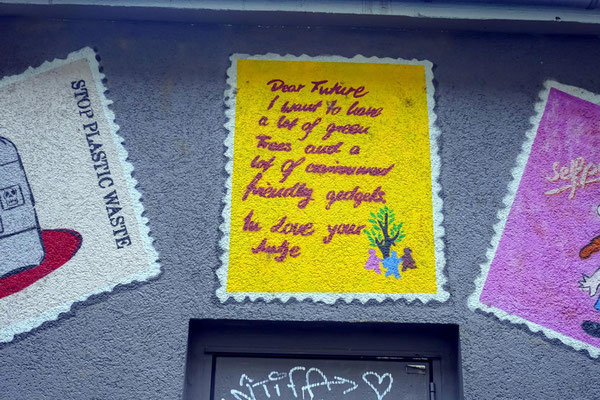 STOP PLASTIC WASTE
Dear Future
I want to have
a lot of green
Trees and a
lot of environment
friendly gedgets.
In Love your
Antje
ANTIFA